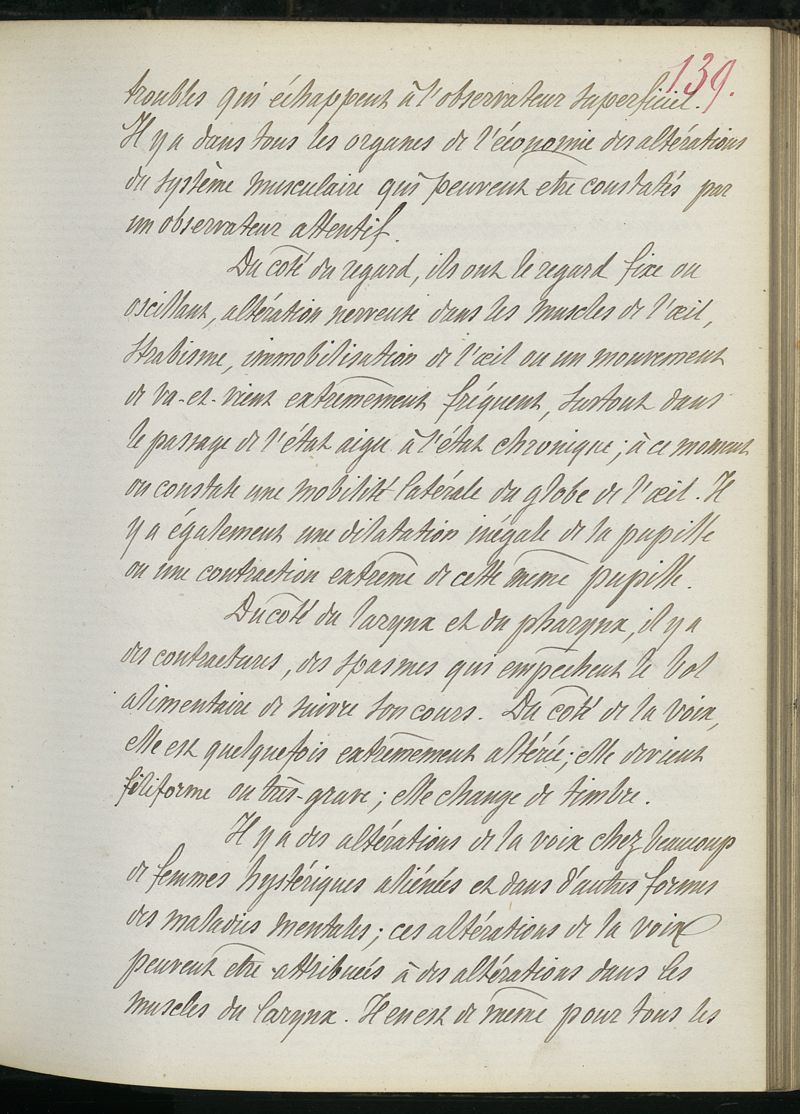 139.
troubles qui échappent à l'observateur superficiel.
Il y a dans tous les organes de l'économie des altérations
du système musculaire qui peuvent etre constatés par
un observateur attentif.
Du coté du regard, ils ont le regard fixe ou
oscillant, altération nerveuse dans les muscles de l'œil,
Strabisme, immobilisation de l'œil ou un mouvement
de va-et-vient extrêmement fréquent, surtout dans
le passage de l'état aigu à l'état chronique; à ce moment
on constate une mobilité latérale du globe de l'œil. Il
y a également une dilatation inégale de la pupille
ou une contraction extrême de cette même pupille.
Du coté du larynx et du pharynx, il y a
des contractures, des spasmes qui empêchent le bol
alimentaire de suivre son cours. Du coté de la voix,
elle est quelquefois extrêmement altérée; elle devient
filiforme ou très-grave; elle change de timbre.
Il y a des altérations de la voix chez beaucoup
de femmes hystériques aliénées et dans d'autres formes
des maladies mentales; ces altérations de la voix
peuvent etre attribuées à des altérations dans les
muscles du larynx. Il en est de même pour tous les